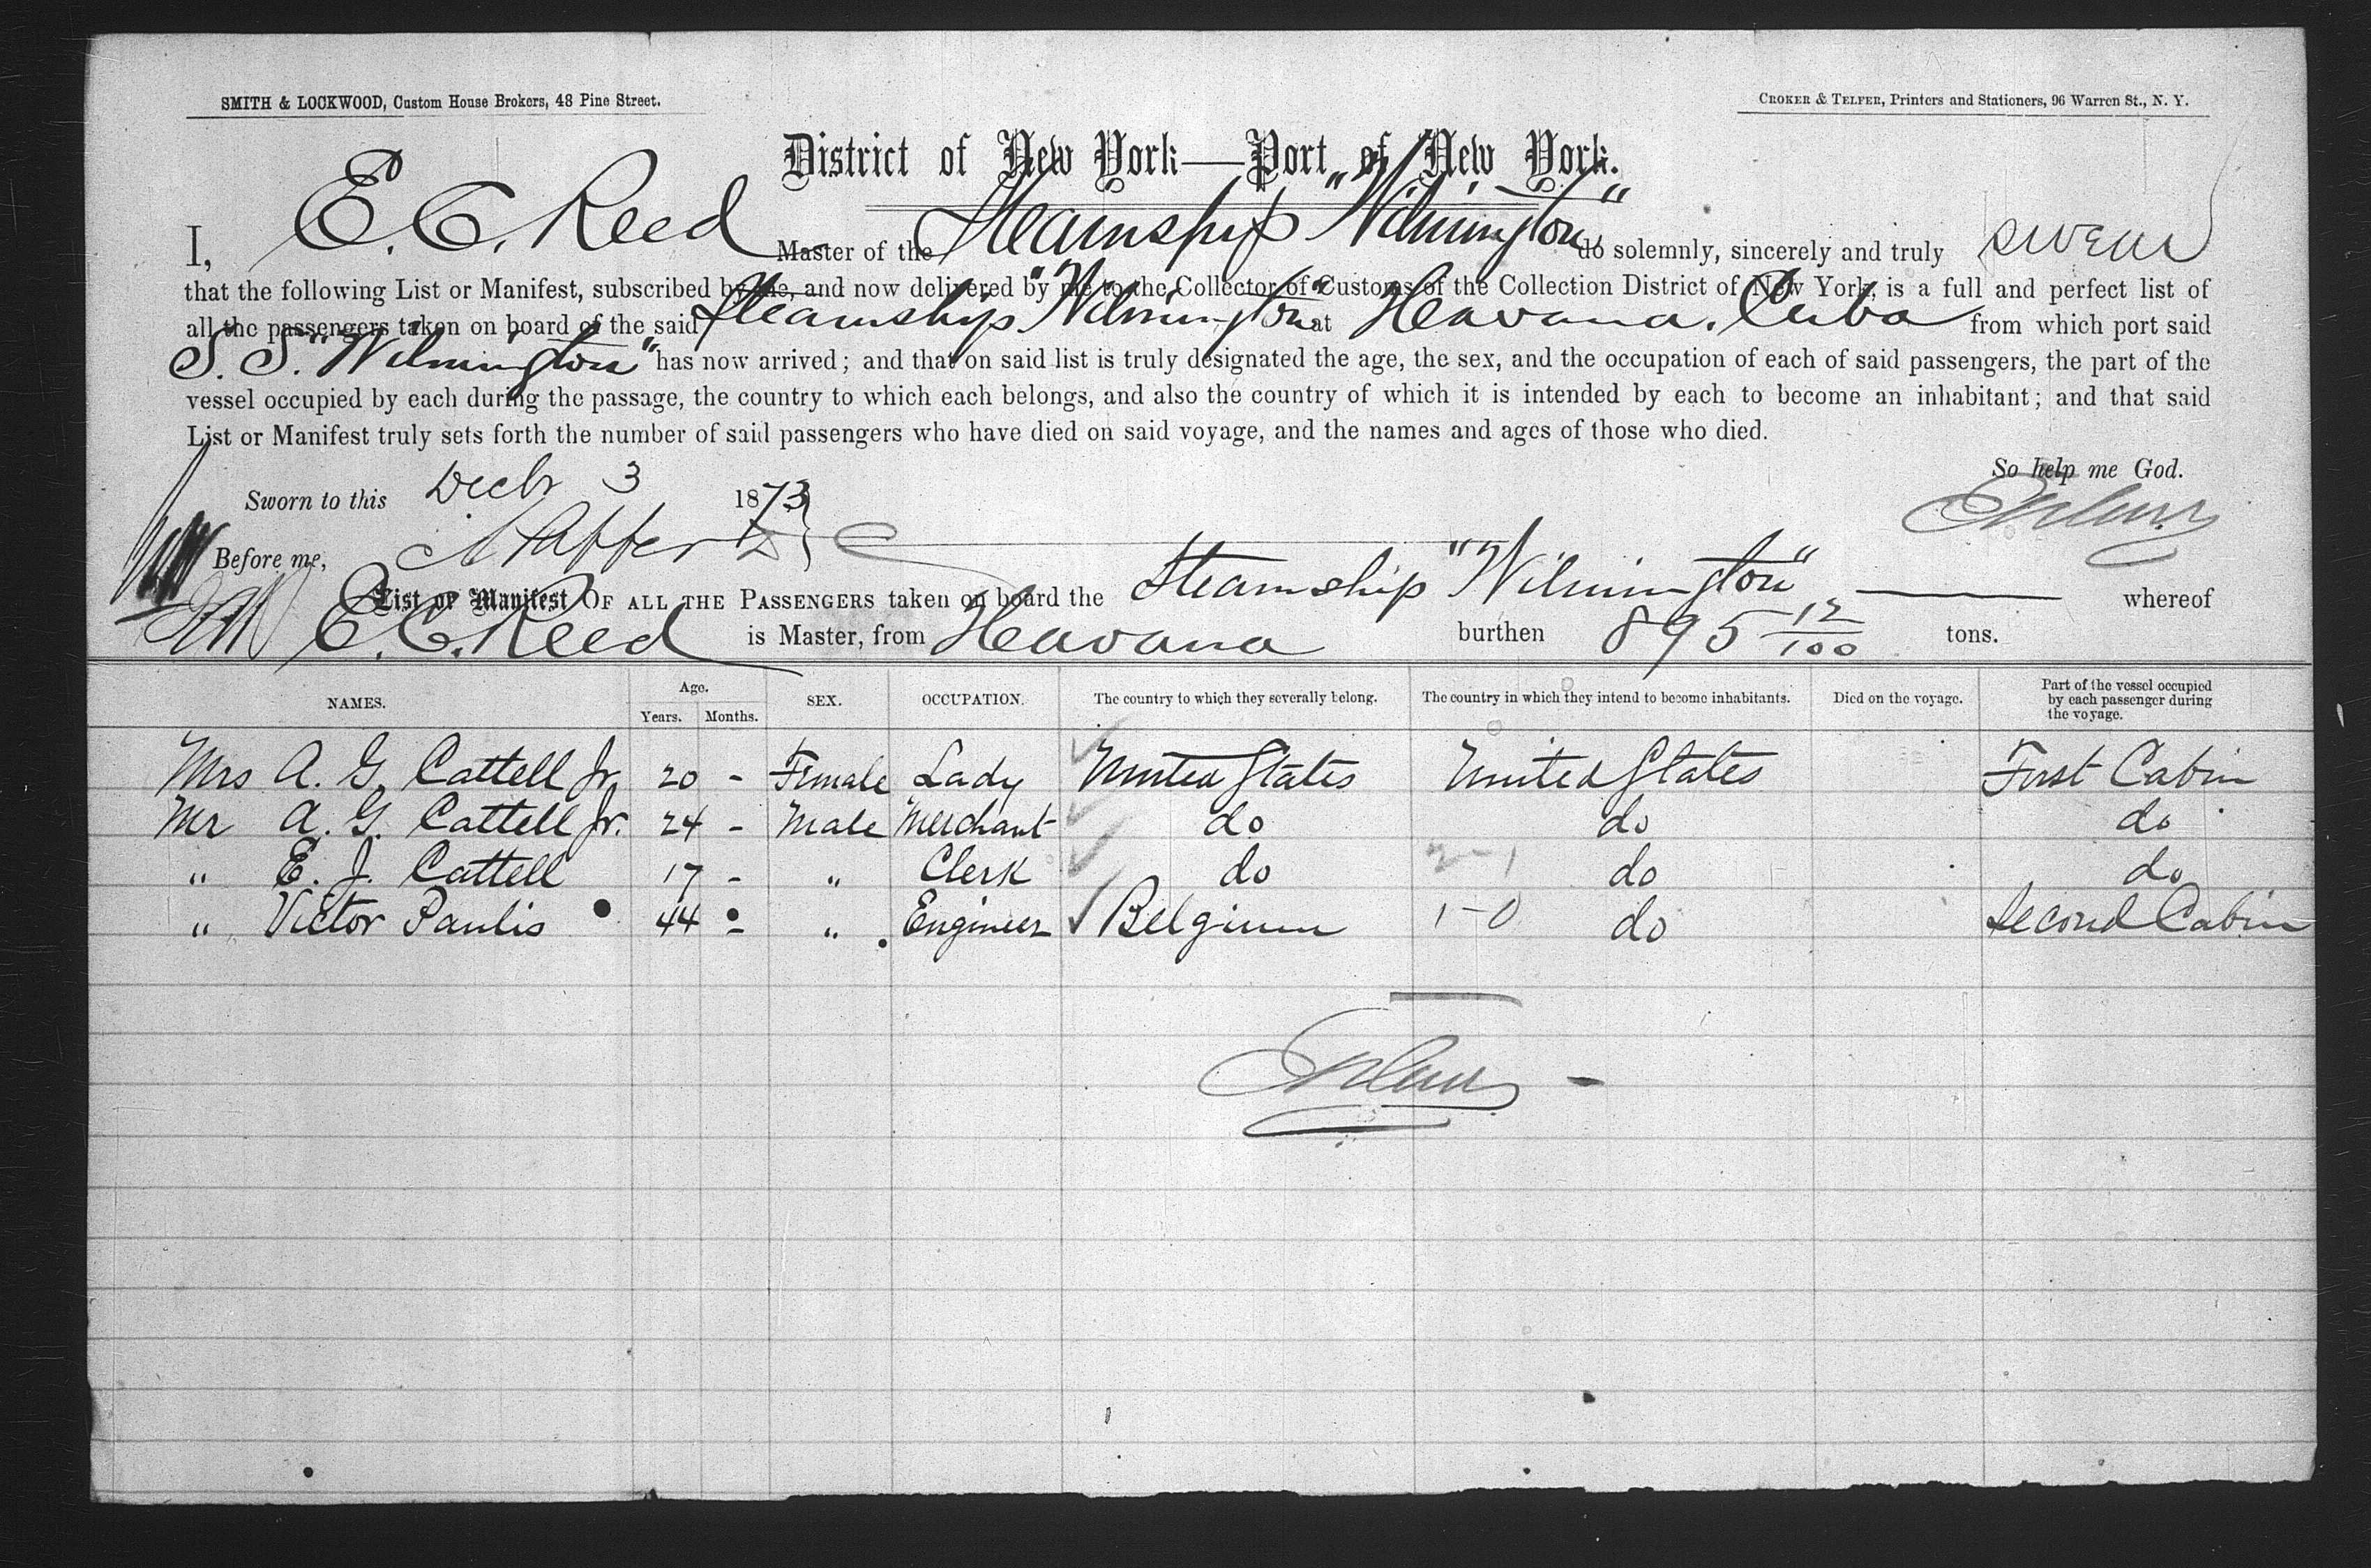 SMITH & LOCKWOOD, Custom House Brokers, 48 Pine Street.
CROKER & TELFER, Printers and Stationers, 96 Warren St., N. Y.
District of New York—Port of New York.
I, E. C. Reed Master of the Steamship "Wilmington" do solemnly, sincerely and truly swear
that the following List or Manifest, subscribed by me, and now delivered by me to the Collector of Customs of the Collection District of New York, is a full and perfect list of
all the passengers taken on board of the said Steamship "Wilmington" at Havana, Cuba from which port said
S. S. "Wilmington" has now arrived; and that on said list is truly designated the age, the sex, and the occupation of each of said passengers, the part of the
vessel occupied by each during the passage, the country to which each belongs, and also the country of which it is intended by each to become an inhabitant; and that said
List or Manifest truly sets forth the number of said passengers who have died on said voyage, and the names and ages of those who died.
So help me God.
Sworn to this Decbr 3 1873
Before me,
List or Manifest OF ALL THE PASSENGERS taken on board the Steamship "Wilmington" whereof
E. C. Reed is Master, from Havana burthen 895 12/100 tons.
NAMES. Age. Years. Months. SEX. OCCUPATION. The country to which they severally belong. The country in which they intend to become inhabitants. Died on the voyage. Part of the vessel occupied by each passenger during the voyage.
Mrs A. G. Cattell Jr. 20 - Female Lady United States United States First Cabin
Mr A. G. Cattell Jr. 24 - Male Merchant do do do
" E. J. Cattell 17 - " Clerk do 2-1 do do
" Victor Paulis 44 - " Engineer Belgium 1-0 do Second Cabin